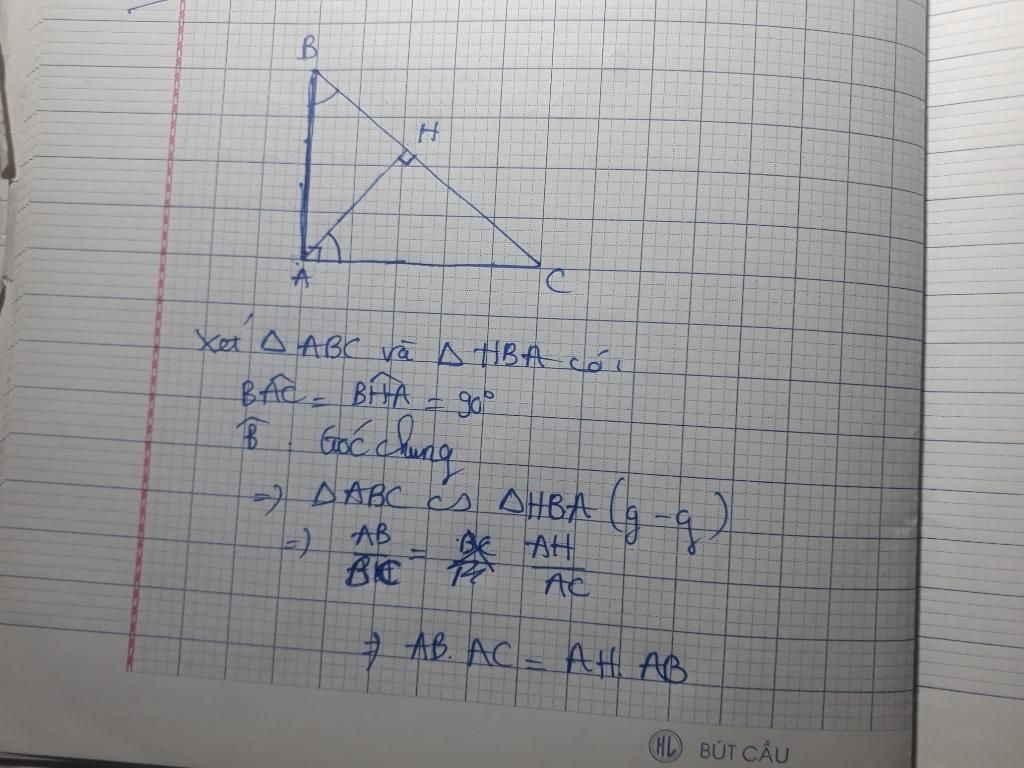 B
H
A
C
Xét △ABC và △HBA có:
BAC^ = BHA^ = 90°
B^ : Góc chung
=> △ABC ∽ △HBA (g-g)
=> AB/BC = AH/AC
=> AB. AC = AH. AB
HL BÚT CẦU